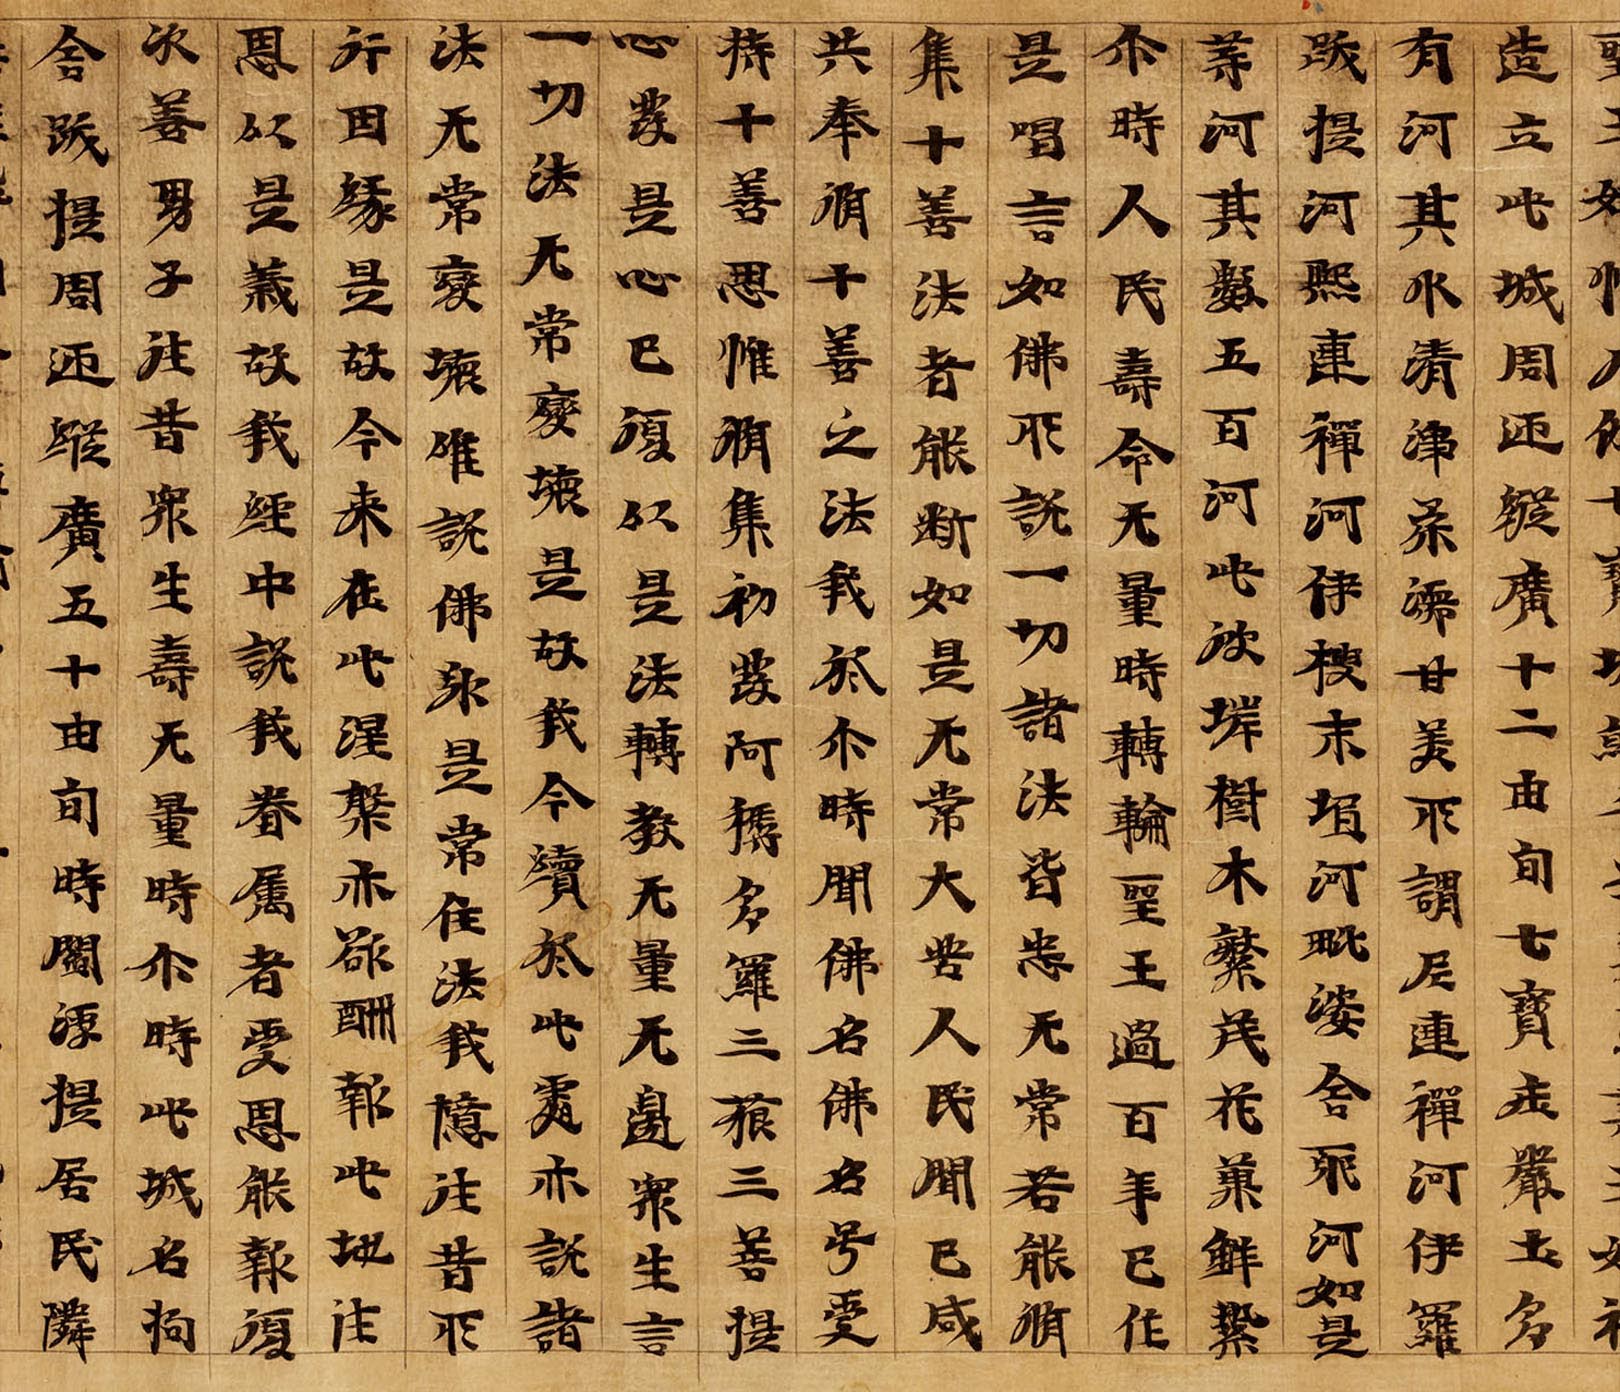 造立此城周迊縱廣十二由旬七寶莊嚴土多
有河其水清淨柔濡甘美所謂尼連禪河伊羅
跋提河熙連禪河伊搜末堆河毗婆舍那河如是
等河其數五百河此彼岸樹木繁茂花菓鮮絜
尒時人民壽命无量時轉輪聖王過百年已作
是唱言如佛所說一切諸法皆悉无常若能脩
集十善法者能断如是无常大苦人民聞已咸
共奉脩十善之法我於尒時聞佛名佛名号受
持十善思惟脩集初發阿耨多羅三藐三菩提
心發是心已復以是法轉教无量无邊衆生言
一切法无常變壞是故我今續於此處亦說諸
法无常變壞唯說佛身是常住法我憶往昔所
行因緣是故今来在此涅槃亦欲酬報此地往
恩以是義故我經中說我眷屬者受恩能報復
次善男子往昔衆生壽无量時尒時此城名拘
舍跋提周迊縱廣五十由旬時閻浮提居民隣